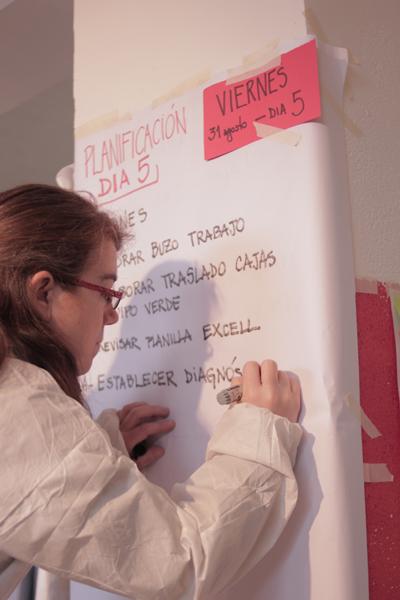 VIERNES
31 agosto — DIA 5
PLANIFICACIÓN
DIA 5
NES
ORAR BUZO TRABAJO
BORAR TRASLADO CAJAS
IPO VERDE
REVISAR PLANILLA EXCELL
ESTABLECER DIAGNÓS